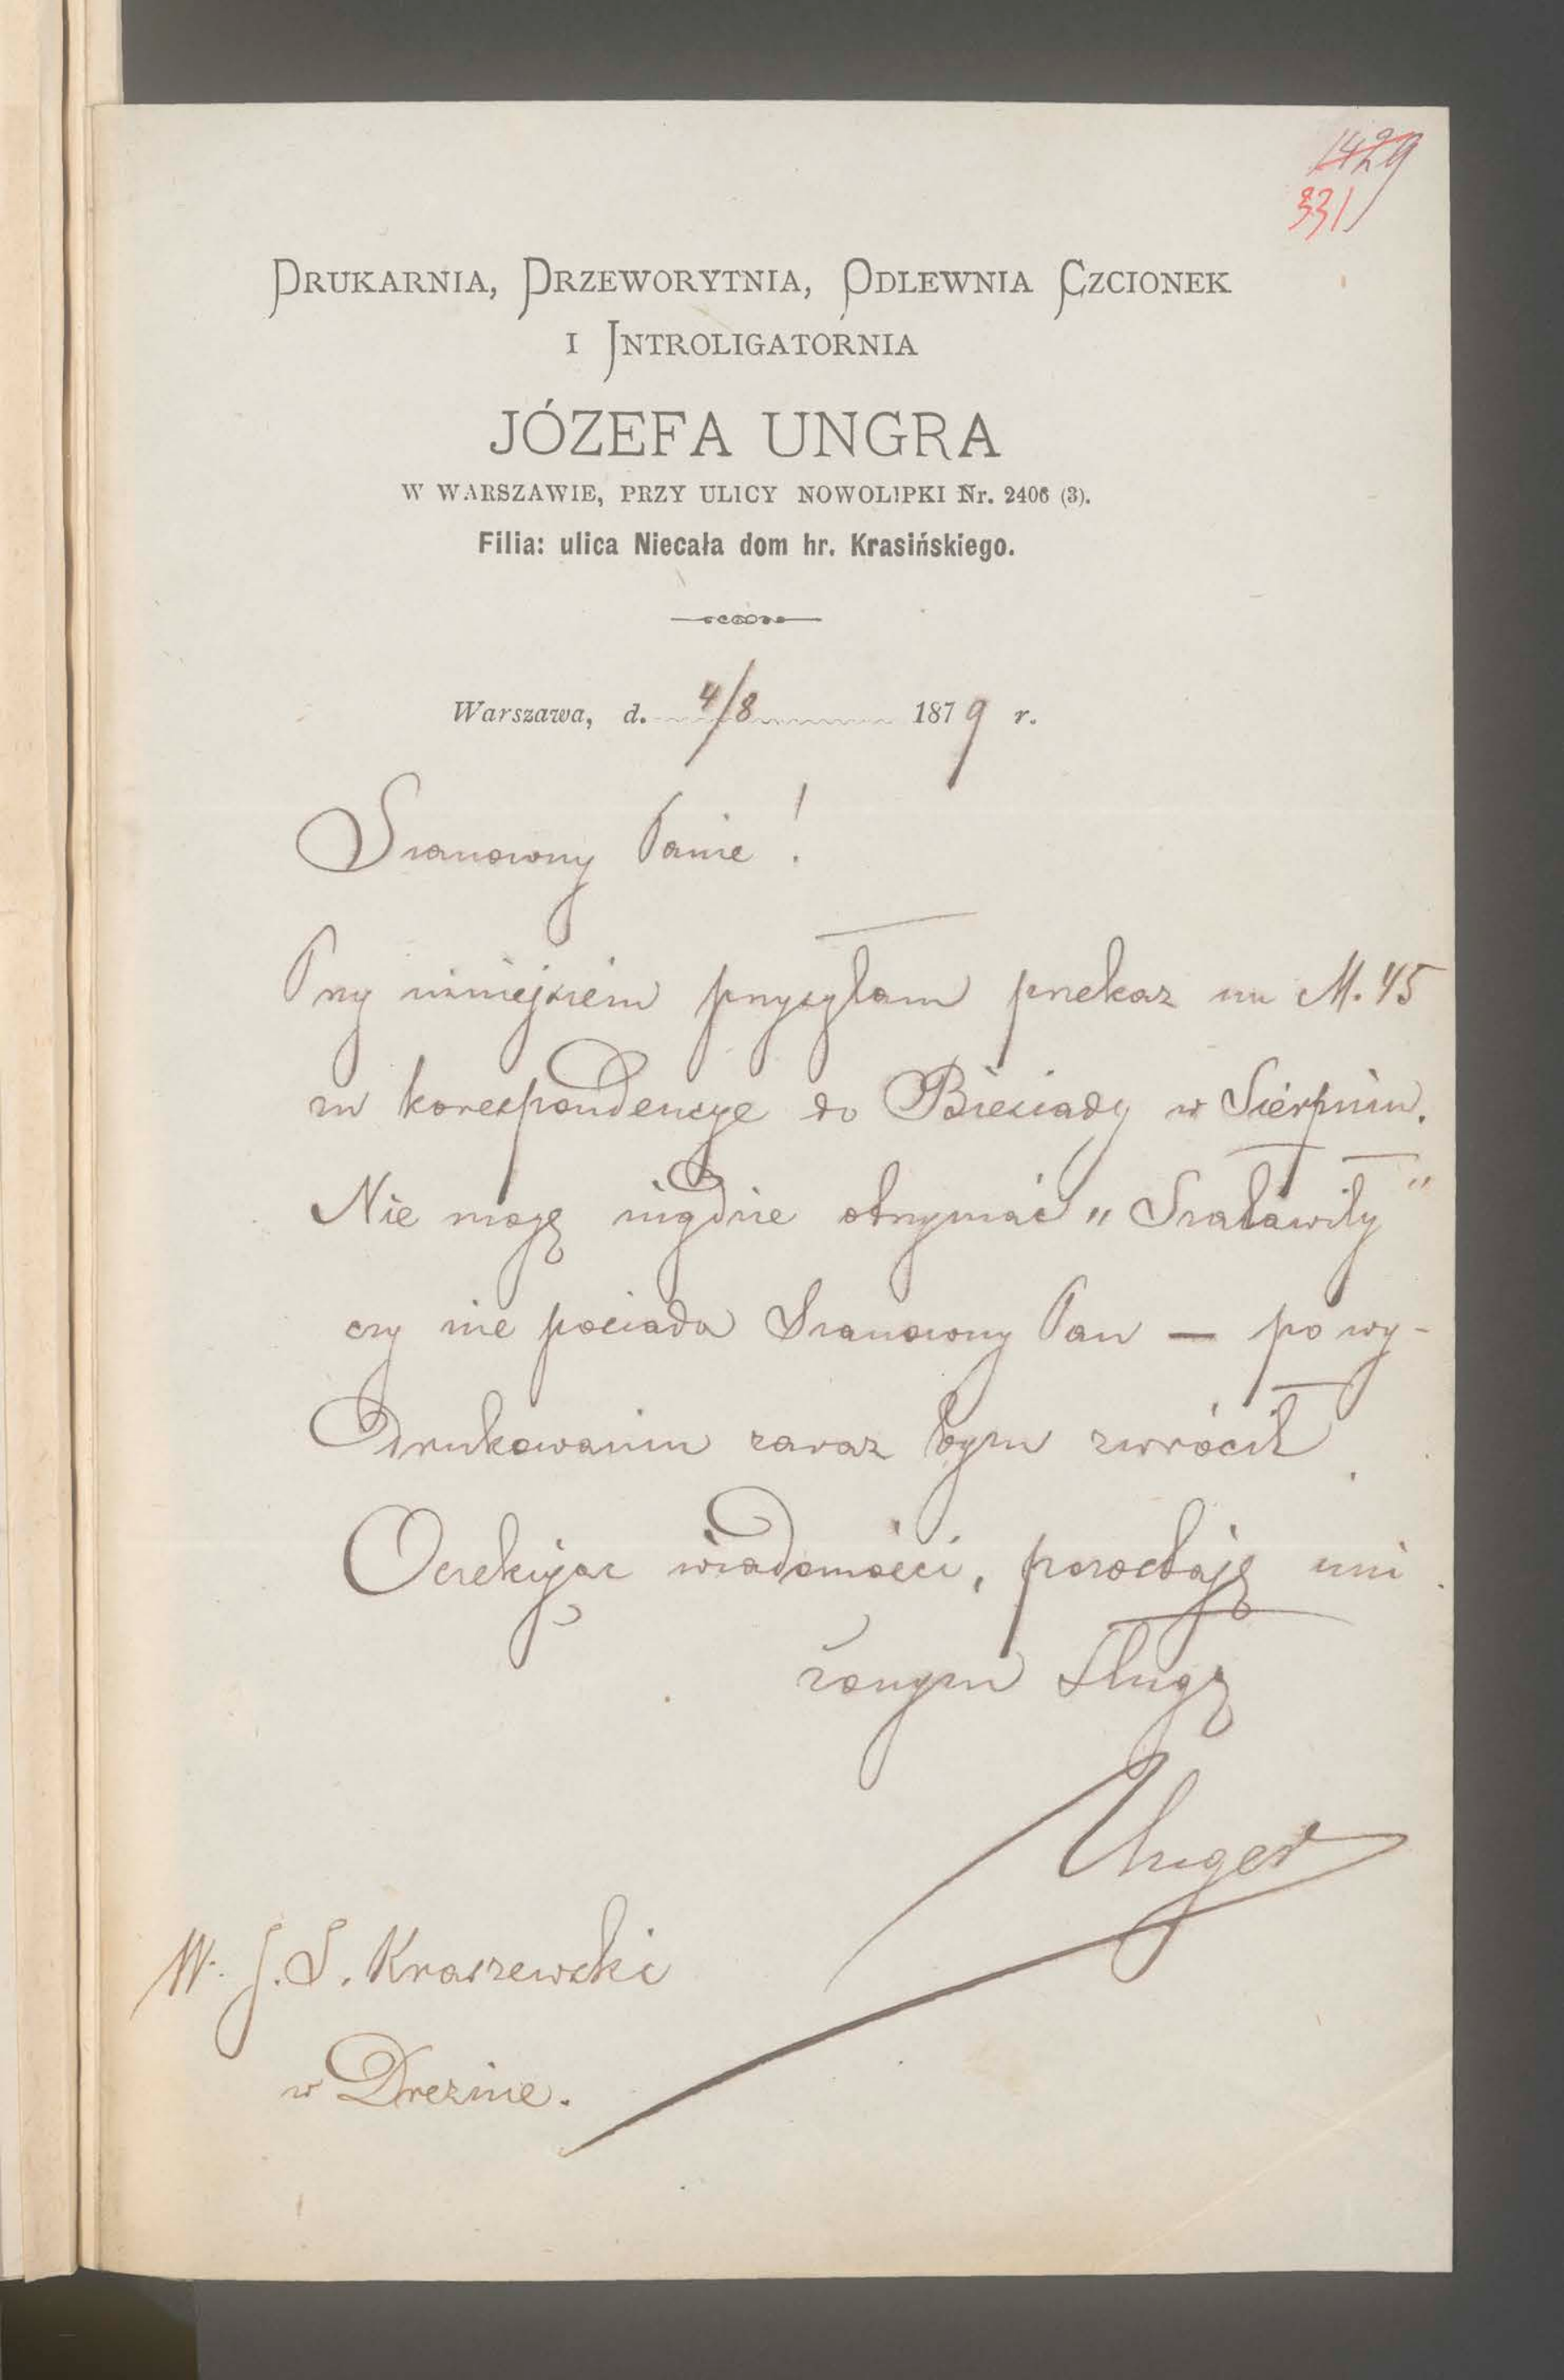 1429
331
DRUKARNIA, DRZEWORYTNIA, ODLEWNIA CZCIONEK
I INTROLIGATORNIA
JÓZEFA UNGRA
W WARSZAWIE, PRZY ULICY NOWOLIPKI Nr. 2406 (3).
Filia: ulica Niecała dom hr. Krasińskiego.
Warszawa, d. 4/8 1879 r.
Szanowny Panie!
Przy niniejszem przysyłam przekaz na M. 45
za korespondencye do Biesiady w Sierpniu.
Nie mogę nigdzie otrzymać „Szaławiły"
czy nie posiada Szanowny Pan — po wy-
drukowaniu zaraz bym zwrócił.
Oczekując wiadomości, pozostaję uni
żonym sługą
Unger
W. J. S. Kraszewski
w Dreznie.